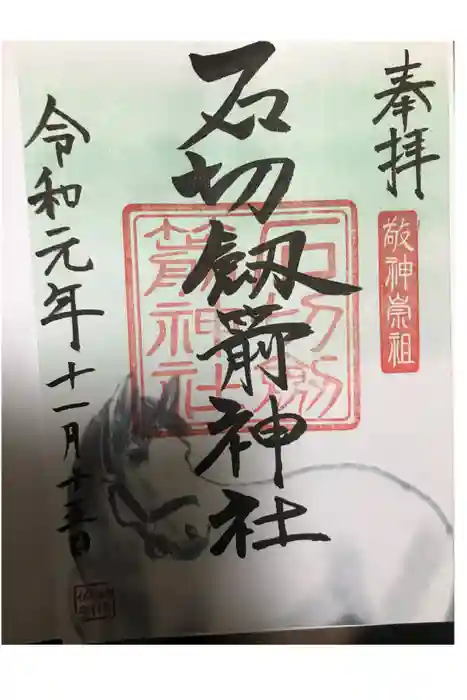 奉拝
敬神崇祖
石切劔箭神社
石切劔箭神社
令和元年十一月十三日